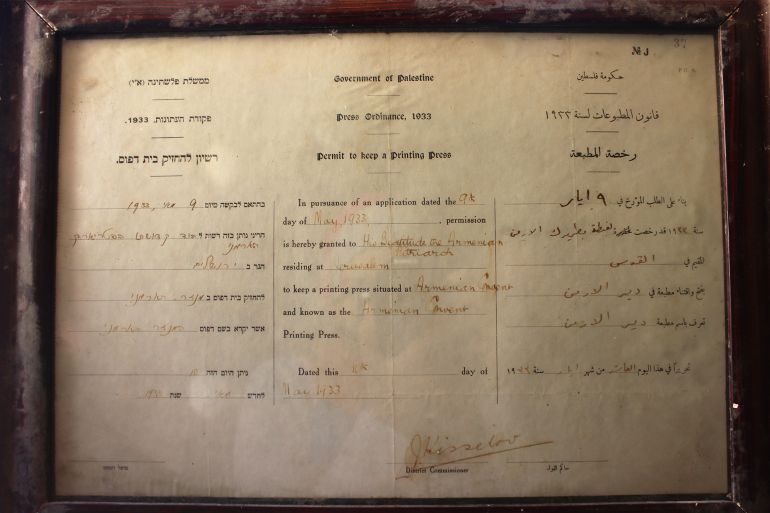 № J 37
ממשלת פלשתינה (א״י)
פקודת העתונות, 1933.
רשיון להחזיק בית דפוס.
בהתאם לבקשה מיום 9 מאי, 1933
הריני נותן בזה רשות ל
הארמני
הגר ב ירושלים
להחזיק בית דפוס ב מנזר הארמני
אשר יקרא בשם דפוס המנזר הארמני
ניתן היום הזה 10
לחדש מאי שנת 1933
מושל המחוז
Government of Palestine
Press Ordinance, 1933
Permit to keep a Printing Press
In pursuance of an application dated the 9th
day of May, 1933, permission
is hereby granted to His Beatitude the Armenian
Patriarch
residing at Jerusalem
to keep a printing press situated at Armenian Convent
and known as the Armenian Convent
Printing Press.
Dated this day of
May 1933
District Commissioner
حكومة فلسطين
قانون المطبوعات لسنة ١٩٣٣
رخصة المطبعة
بناء على الطلب المؤرخ في ٩ ايار
سنة ١٩٣٣ قد رخصت لغبطة بطريرك الارمن
المقيم في القدس
بفتح واقتناء مطبعة في دير الارمن
تعرف باسم مطبعة دير الارمن
تحريراً في هذا اليوم العاشر من شهر ايار سنة ١٩٣٣
حاكم اللواء